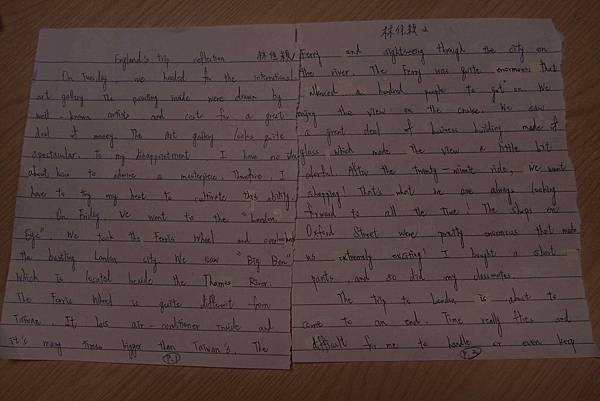 England's trip reflection 林佳穎
On Tuesday we headed for the international
art gallery. The painting inside were drawn by
well-known artists and cost for a great
deal of money. The art gallery looks quite
spectacular. To my disappointment I have no idea
about how to admire a masterpiece. Therefore, I
have to try my best to cultivate this ability.
On Friday, We went to the "London
Eye". We took the Ferris Wheel and overlooked
the bustling London city. We saw "Big Ben"
Which Is located beside the Thames River.
The Ferris Wheel is quite different from
Taiwan. It has air-conditioner inside and
it's many times bigger than Taiwan's. The
P.1
林佳穎 2
Ferry and sightseeing through the city on
the river. The Ferry was quite enormous that
allowed a hundred people to get on. We
enjoy the view on the cruise. We saw
a great deal of business building made of
glass which made the view a little bit
colorful. After the twenty-minute ride, we went
shopping! That's what we are always looking
forward to all the time! The shops on
Oxford Street were pretty enormous that made
us extremely exciting! I bought a short
pants and so did my classmates.
The trip to London is about to
come to an end. Time really flies and
difficult for me to handle or even keep
P.2